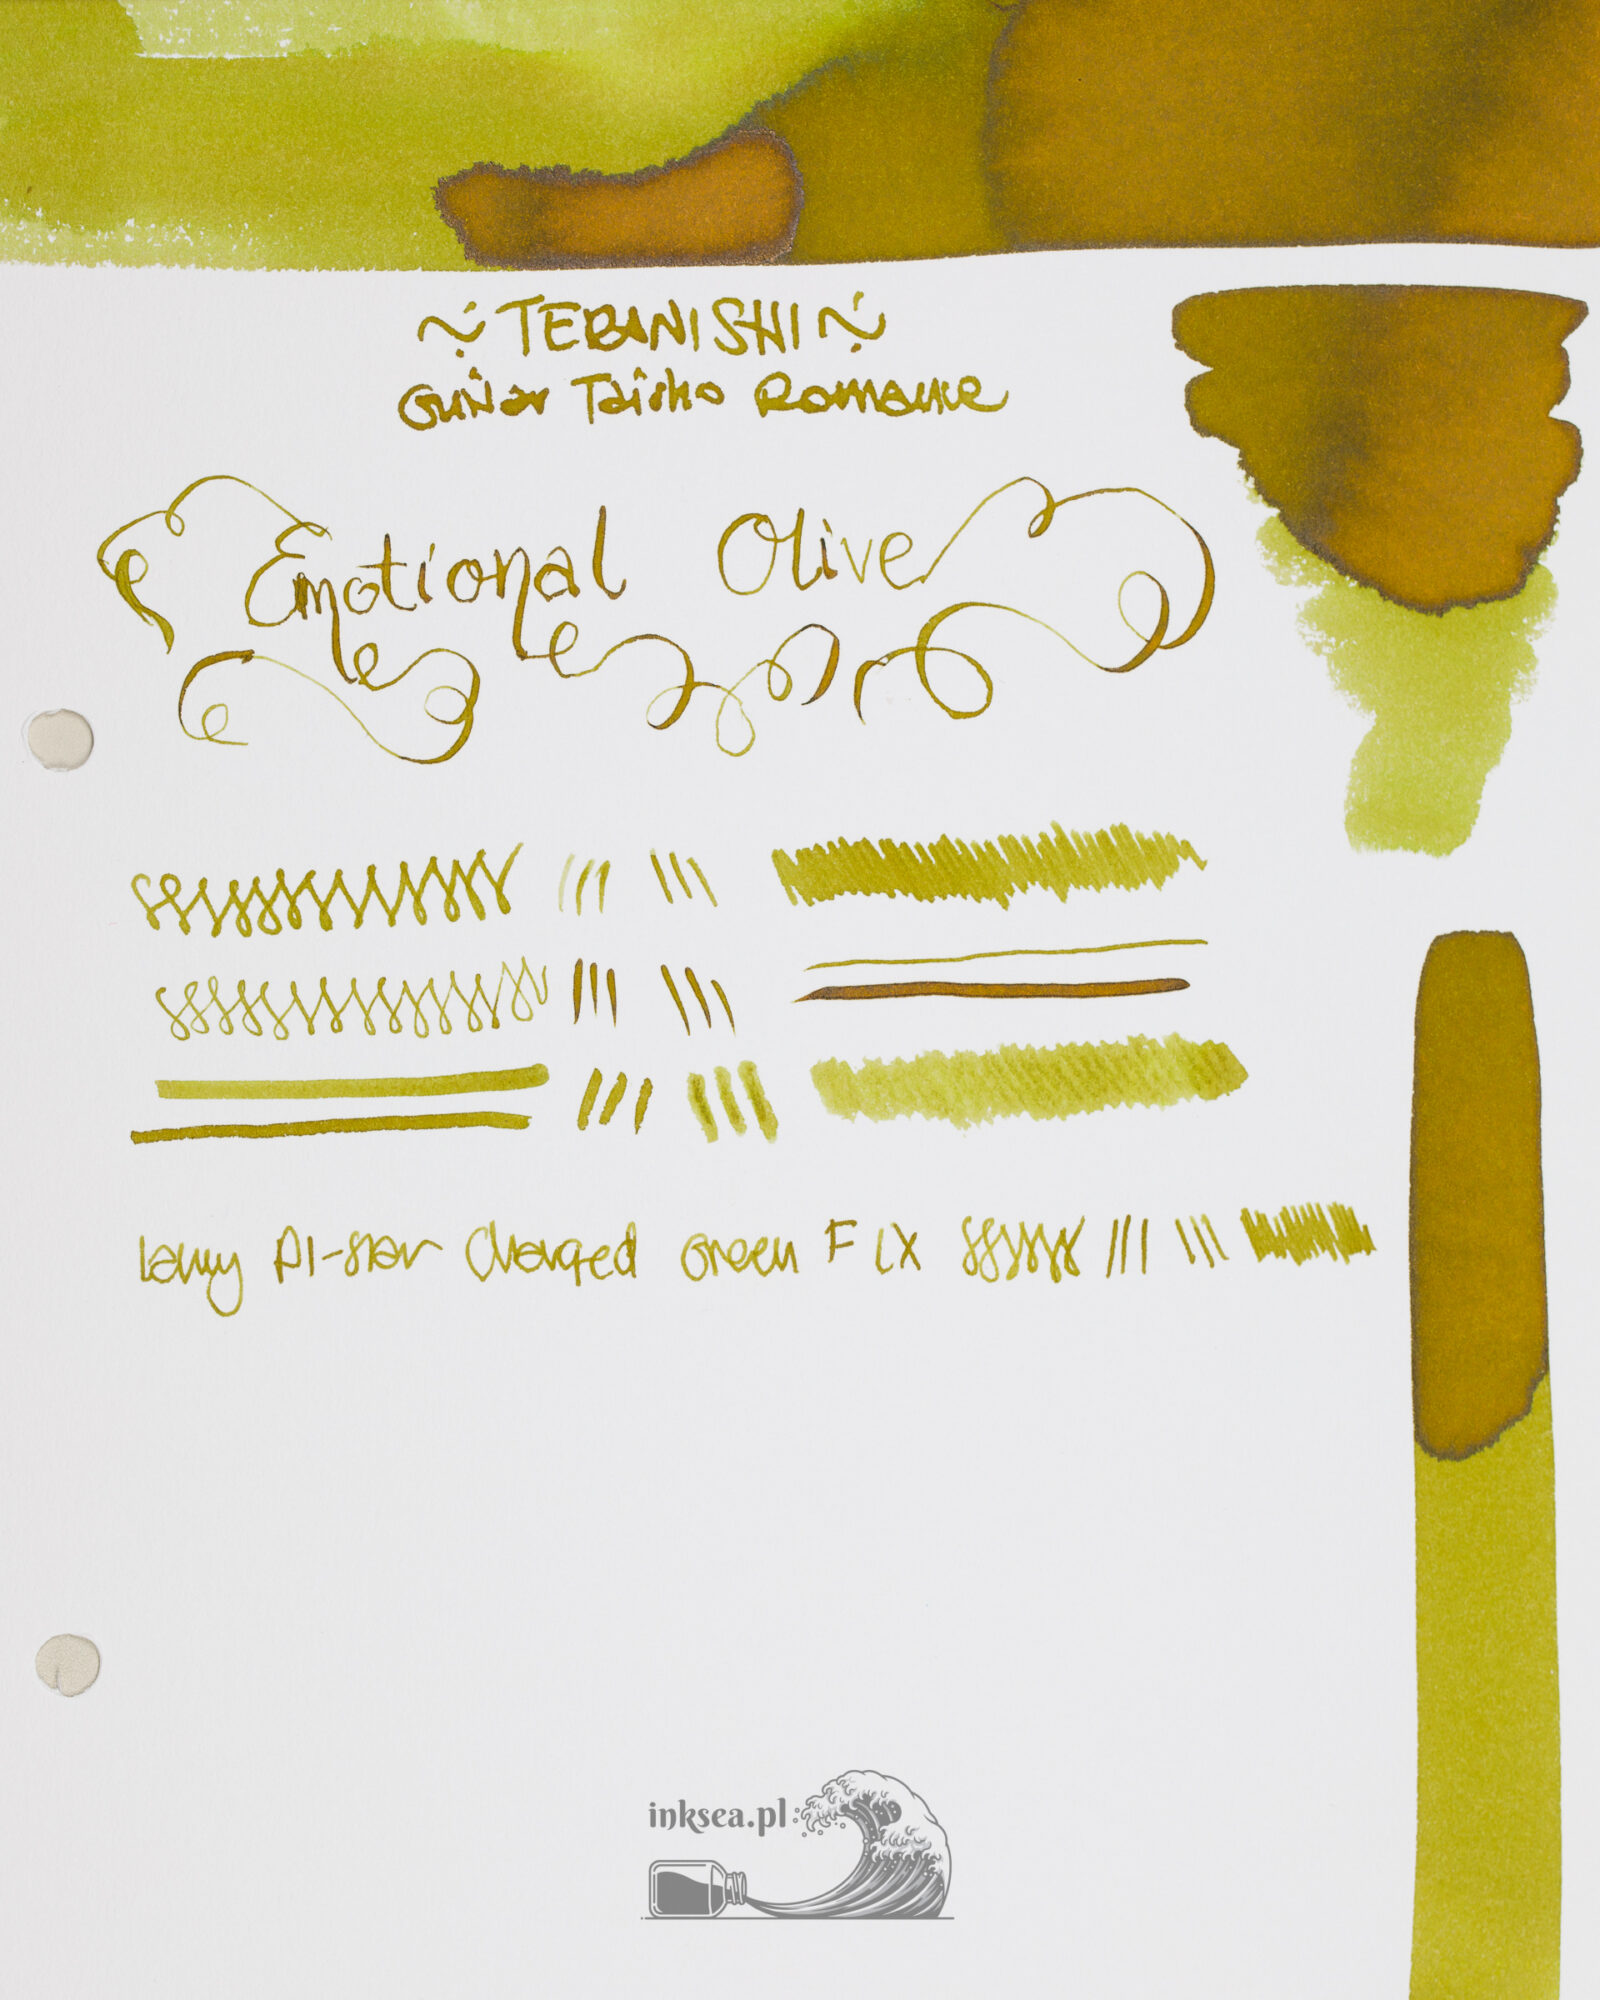 ~ TERANISHI ~
Guitar Taisho Romance
Emotional Olive
Lamy Al-star Charged Green F LX
inksea.pl